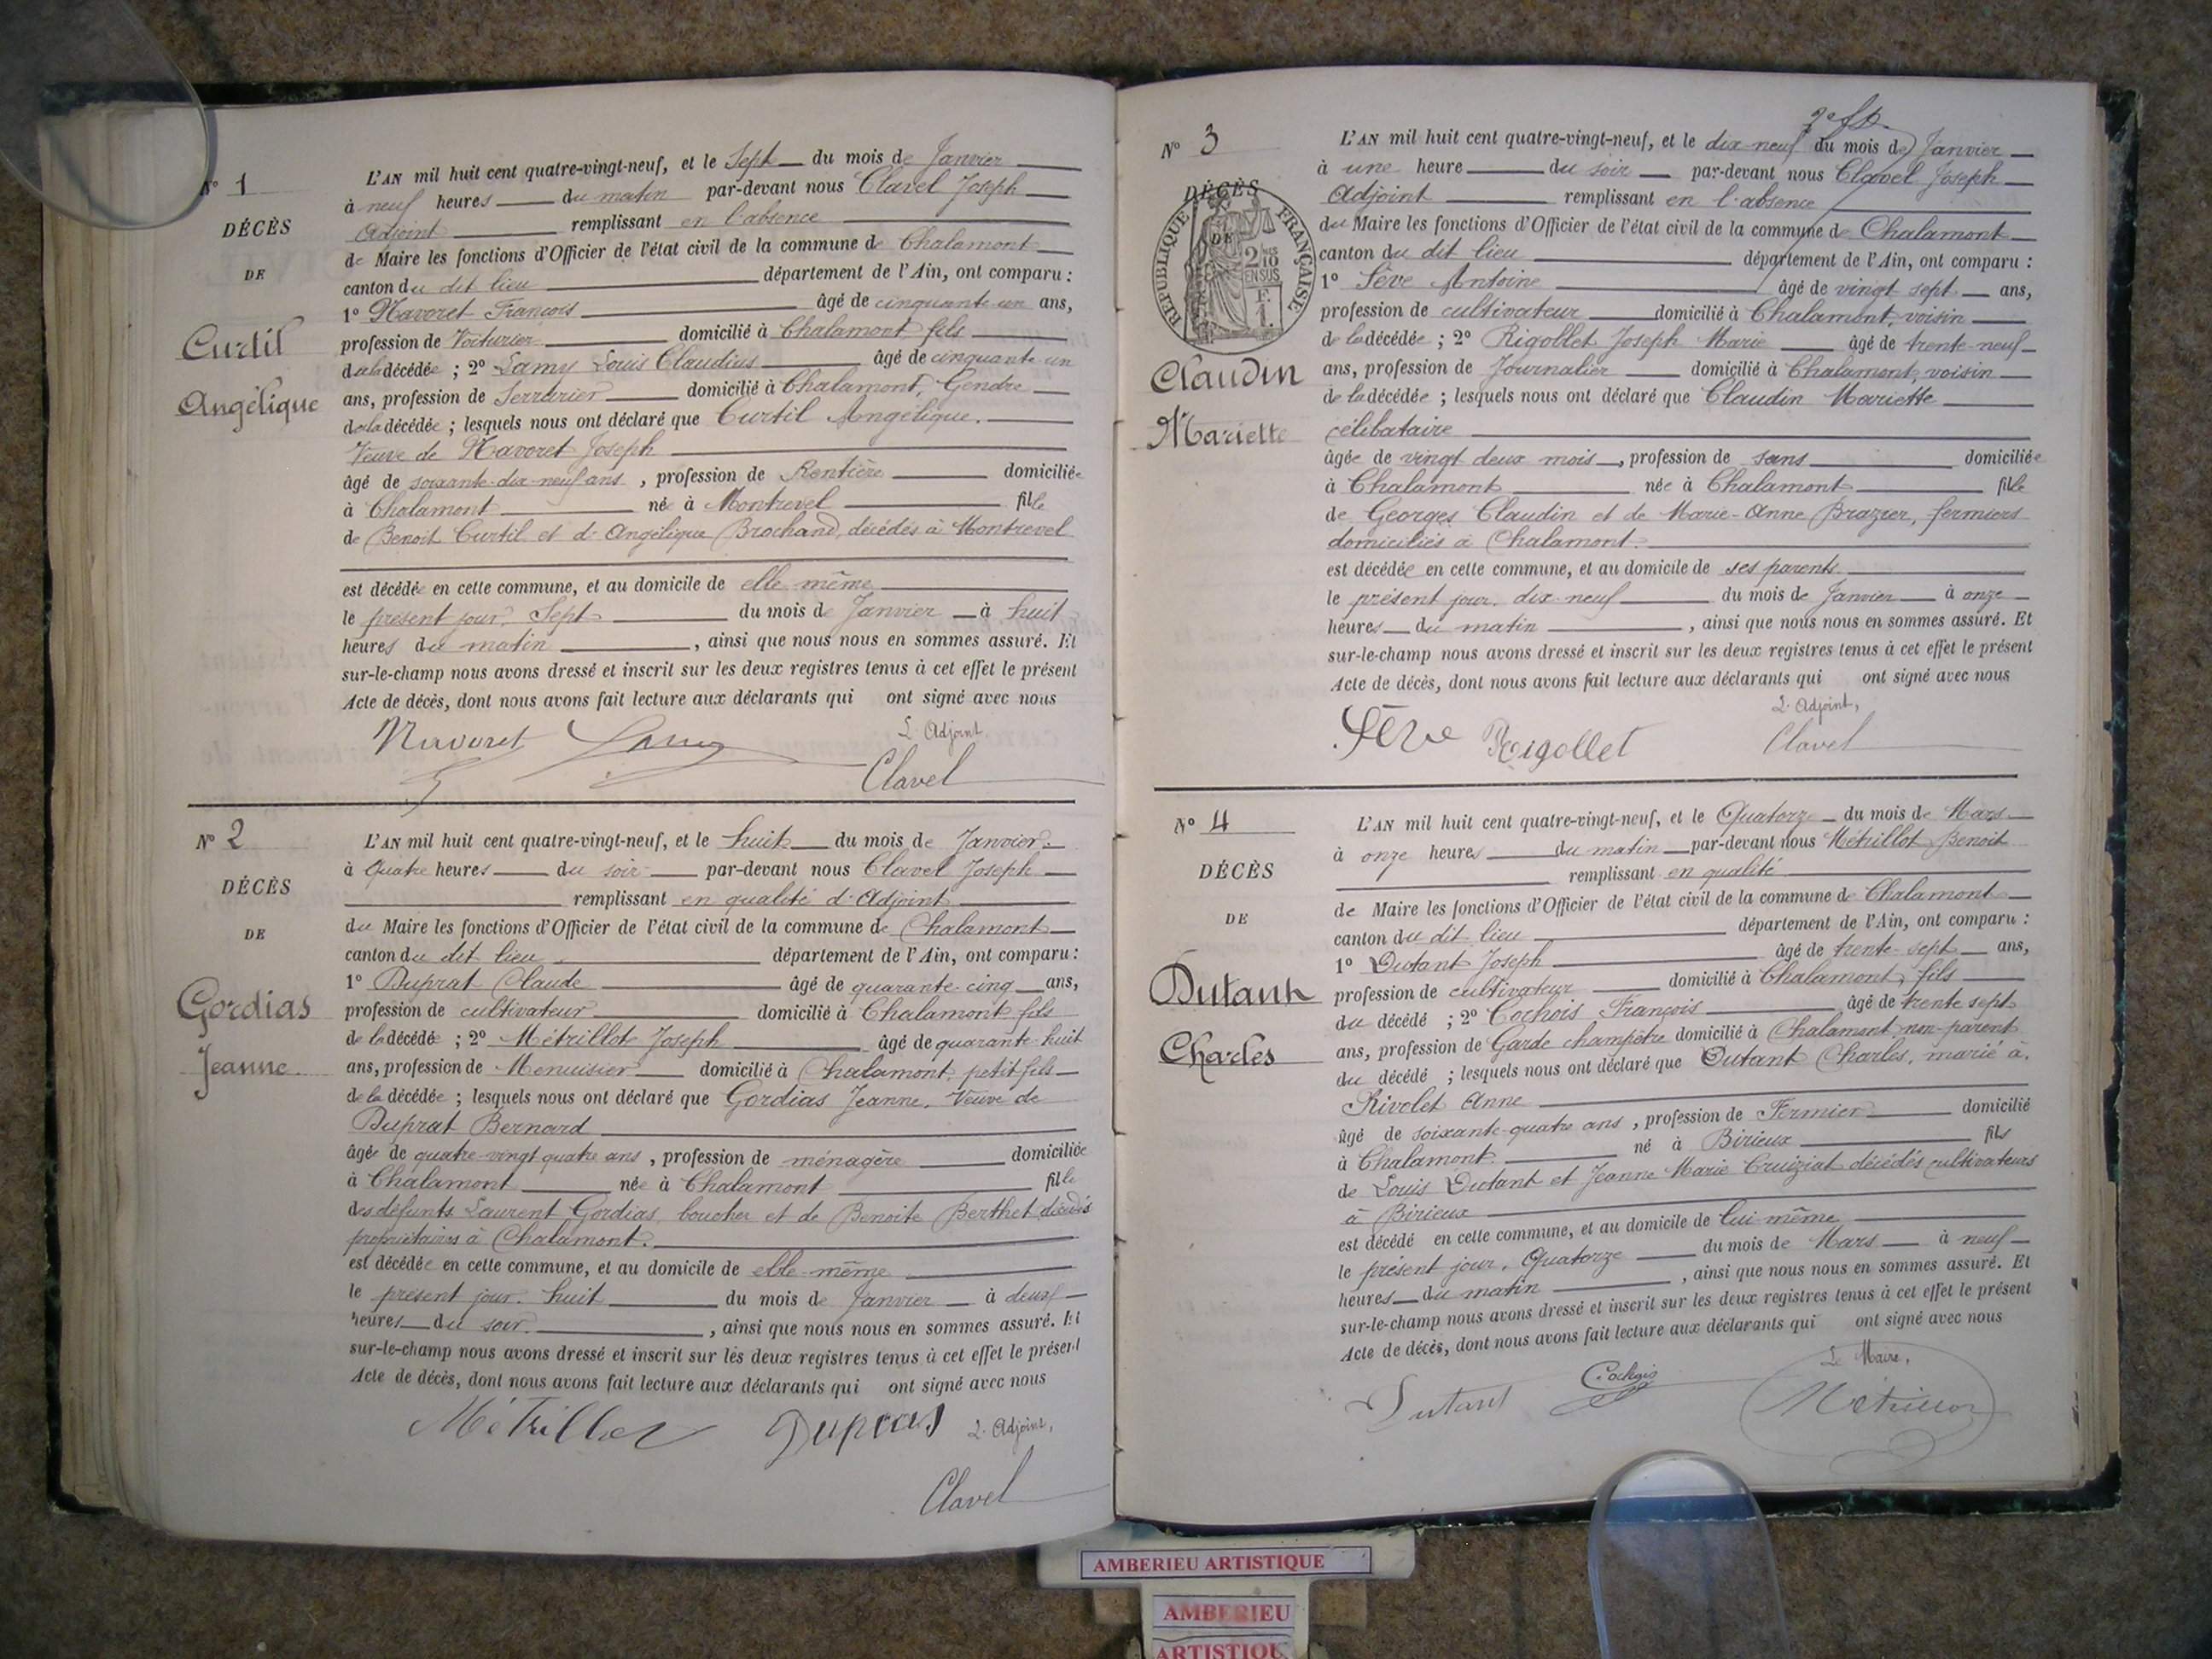 N° 1
DÉCÈS
DE
Curtil
Angélique
L'AN mil huit cent quatre-vingt-neuf, et le Sept du mois de Janvier
à neuf heures du matin par-devant nous Clavel Joseph
Adjoint remplissant en l'absence
de Maire les fonctions d'Officier de l'état civil de la commune de Chalamont
canton du dit lieu département de l'Ain, ont comparu :
1° Navoret François âgé de cinquante-un ans,
profession de Voiturier domicilié à Chalamont, fils
de la décédée ; 2° Lamy Louis Claudius âgé de cinquante un
ans, profession de Serrurier domicilié à Chalamont, Gendre
de la décédée ; lesquels nous ont déclaré que Curtil Angélique.
Veuve de Navoret Joseph
âgé de soixante-dix-neuf ans , profession de Rentière domiciliée
à Chalamont née à Montrevel fille
de Benoit Curtil et d'Angélique Brochand, décédés à Montrevel
est décédée en cette commune, et au domicile de elle même
le présent jour, Sept du mois de Janvier à huit
heures du matin , ainsi que nous nous en sommes assuré. Et
sur-le-champ nous avons dressé et inscrit sur les deux registres tenus à cet effet le présent
Acte de décès, dont nous avons fait lecture aux déclarants qui ont signé avec nous
L'Adjoint
Navoret Lamy Clavel
N° 2
DÉCÈS
DE
Gordias
Jeanne
L'AN mil huit cent quatre-vingt-neuf, et le huit du mois de Janvier
à Quatre heures du soir par-devant nous Clavel Joseph
remplissant en qualité d'Adjoint
du Maire les fonctions d'Officier de l'état civil de la commune de Chalamont
canton du dit lieu département de l'Ain, ont comparu :
1° Duprat Claude âgé de quarante-cinq ans,
profession de cultivateur domicilié à Chalamont fils
de la décédée ; 2° Métrillot Joseph âgé de quarante huit
ans, profession de Menuisier domicilié à Chalamont, petit fils
de la décédée ; lesquels nous ont déclaré que Gordias Jeanne, Veuve de
Duprat Bernard
âgée de quatre-vingt quatre ans , profession de ménagère domiciliée
à Chalamont née à Chalamont fille
des défunts Laurent Gordias, boucher et de Benoite Berthet décédés
propriétaires à Chalamont.
est décédée en cette commune, et au domicile de elle-même
le présent jour. huit du mois de Janvier à deux
heures du soir. , ainsi que nous nous en sommes assuré. Et
sur-le-champ nous avons dressé et inscrit sur les deux registres tenus à cet effet le présent
Acte de décès, dont nous avons fait lecture aux déclarants qui ont signé avec nous
Métrillot Duprat L'Adjoint,
Clavel
N° 3
DÉCÈS
DE
RÉPUBLIQUE FRANÇAISE
2/10
EN SUS
Claudin
Mariette
L'AN mil huit cent quatre-vingt-neuf, et le dix-neuf du mois de Janvier
à une heure du soir par-devant nous Clavel Joseph
Adjoint remplissant en l'absence
du Maire les fonctions d'Officier de l'état civil de la commune de Chalamont
canton du dit lieu département de l'Ain, ont comparu :
1° Sève Antoine âgé de vingt sept ans,
profession de cultivateur domicilié à Chalamont, voisin
de la décédée ; 2° Rigollet Joseph Marie âgé de trente-neuf
ans, profession de Journalier domicilié à Chalamont, voisin
de la décédée ; lesquels nous ont déclaré que Claudin Mariette
célibataire
âgée de vingt deux mois , profession de sans domiciliée
à Chalamont née à Chalamont fille
de Georges Claudin et de Marie-Anne Brazier, fermiers
domiciliés à Chalamont.
est décédée en cette commune, et au domicile de ses parents
le présent jour. dix-neuf du mois de Janvier à onze
heures du matin , ainsi que nous nous en sommes assuré. Et
sur-le-champ nous avons dressé et inscrit sur les deux registres tenus à cet effet le présent
Acte de décès, dont nous avons fait lecture aux déclarants qui ont signé avec nous
L'Adjoint,
Sève Rigollet Clavel
N° 4
DÉCÈS
DE
Dutant
Charles
L'AN mil huit cent quatre-vingt-neuf, et le Quatorze du mois de Mars
à onze heures du matin par-devant nous Métrillot Benoit
remplissant en qualité
de Maire les fonctions d'Officier de l'état civil de la commune de Chalamont
canton du dit lieu département de l'Ain, ont comparu :
1° Dutant Joseph âgé de trente-sept ans,
profession de cultivateur domicilié à Chalamont, fils
du décédé ; 2° Cochois François âgé de trente sept
ans, profession de Garde champêtre domicilié à Chalamont non-parent
du décédé ; lesquels nous ont déclaré que Dutant Charles, marié à
Rivolet Anne
âgé de soixante-quatre ans , profession de Fermier domicilié
à Chalamont. né à Birieux fils
de Louis Dutant et Jeanne Marie Cruiziat décédés cultivateurs
à Birieux
est décédé en cette commune, et au domicile de lui-même
le présent jour, Quatorze du mois de Mars à neuf
heures du matin , ainsi que nous nous en sommes assuré. Et
sur-le-champ nous avons dressé et inscrit sur les deux registres tenus à cet effet le présent
Acte de décès, dont nous avons fait lecture aux déclarants qui ont signé avec nous
Le Maire,
Dutant Cochois Métrillot
AMBERIEU ARTISTIQUE
AMBERIEU
ARTISTIQU